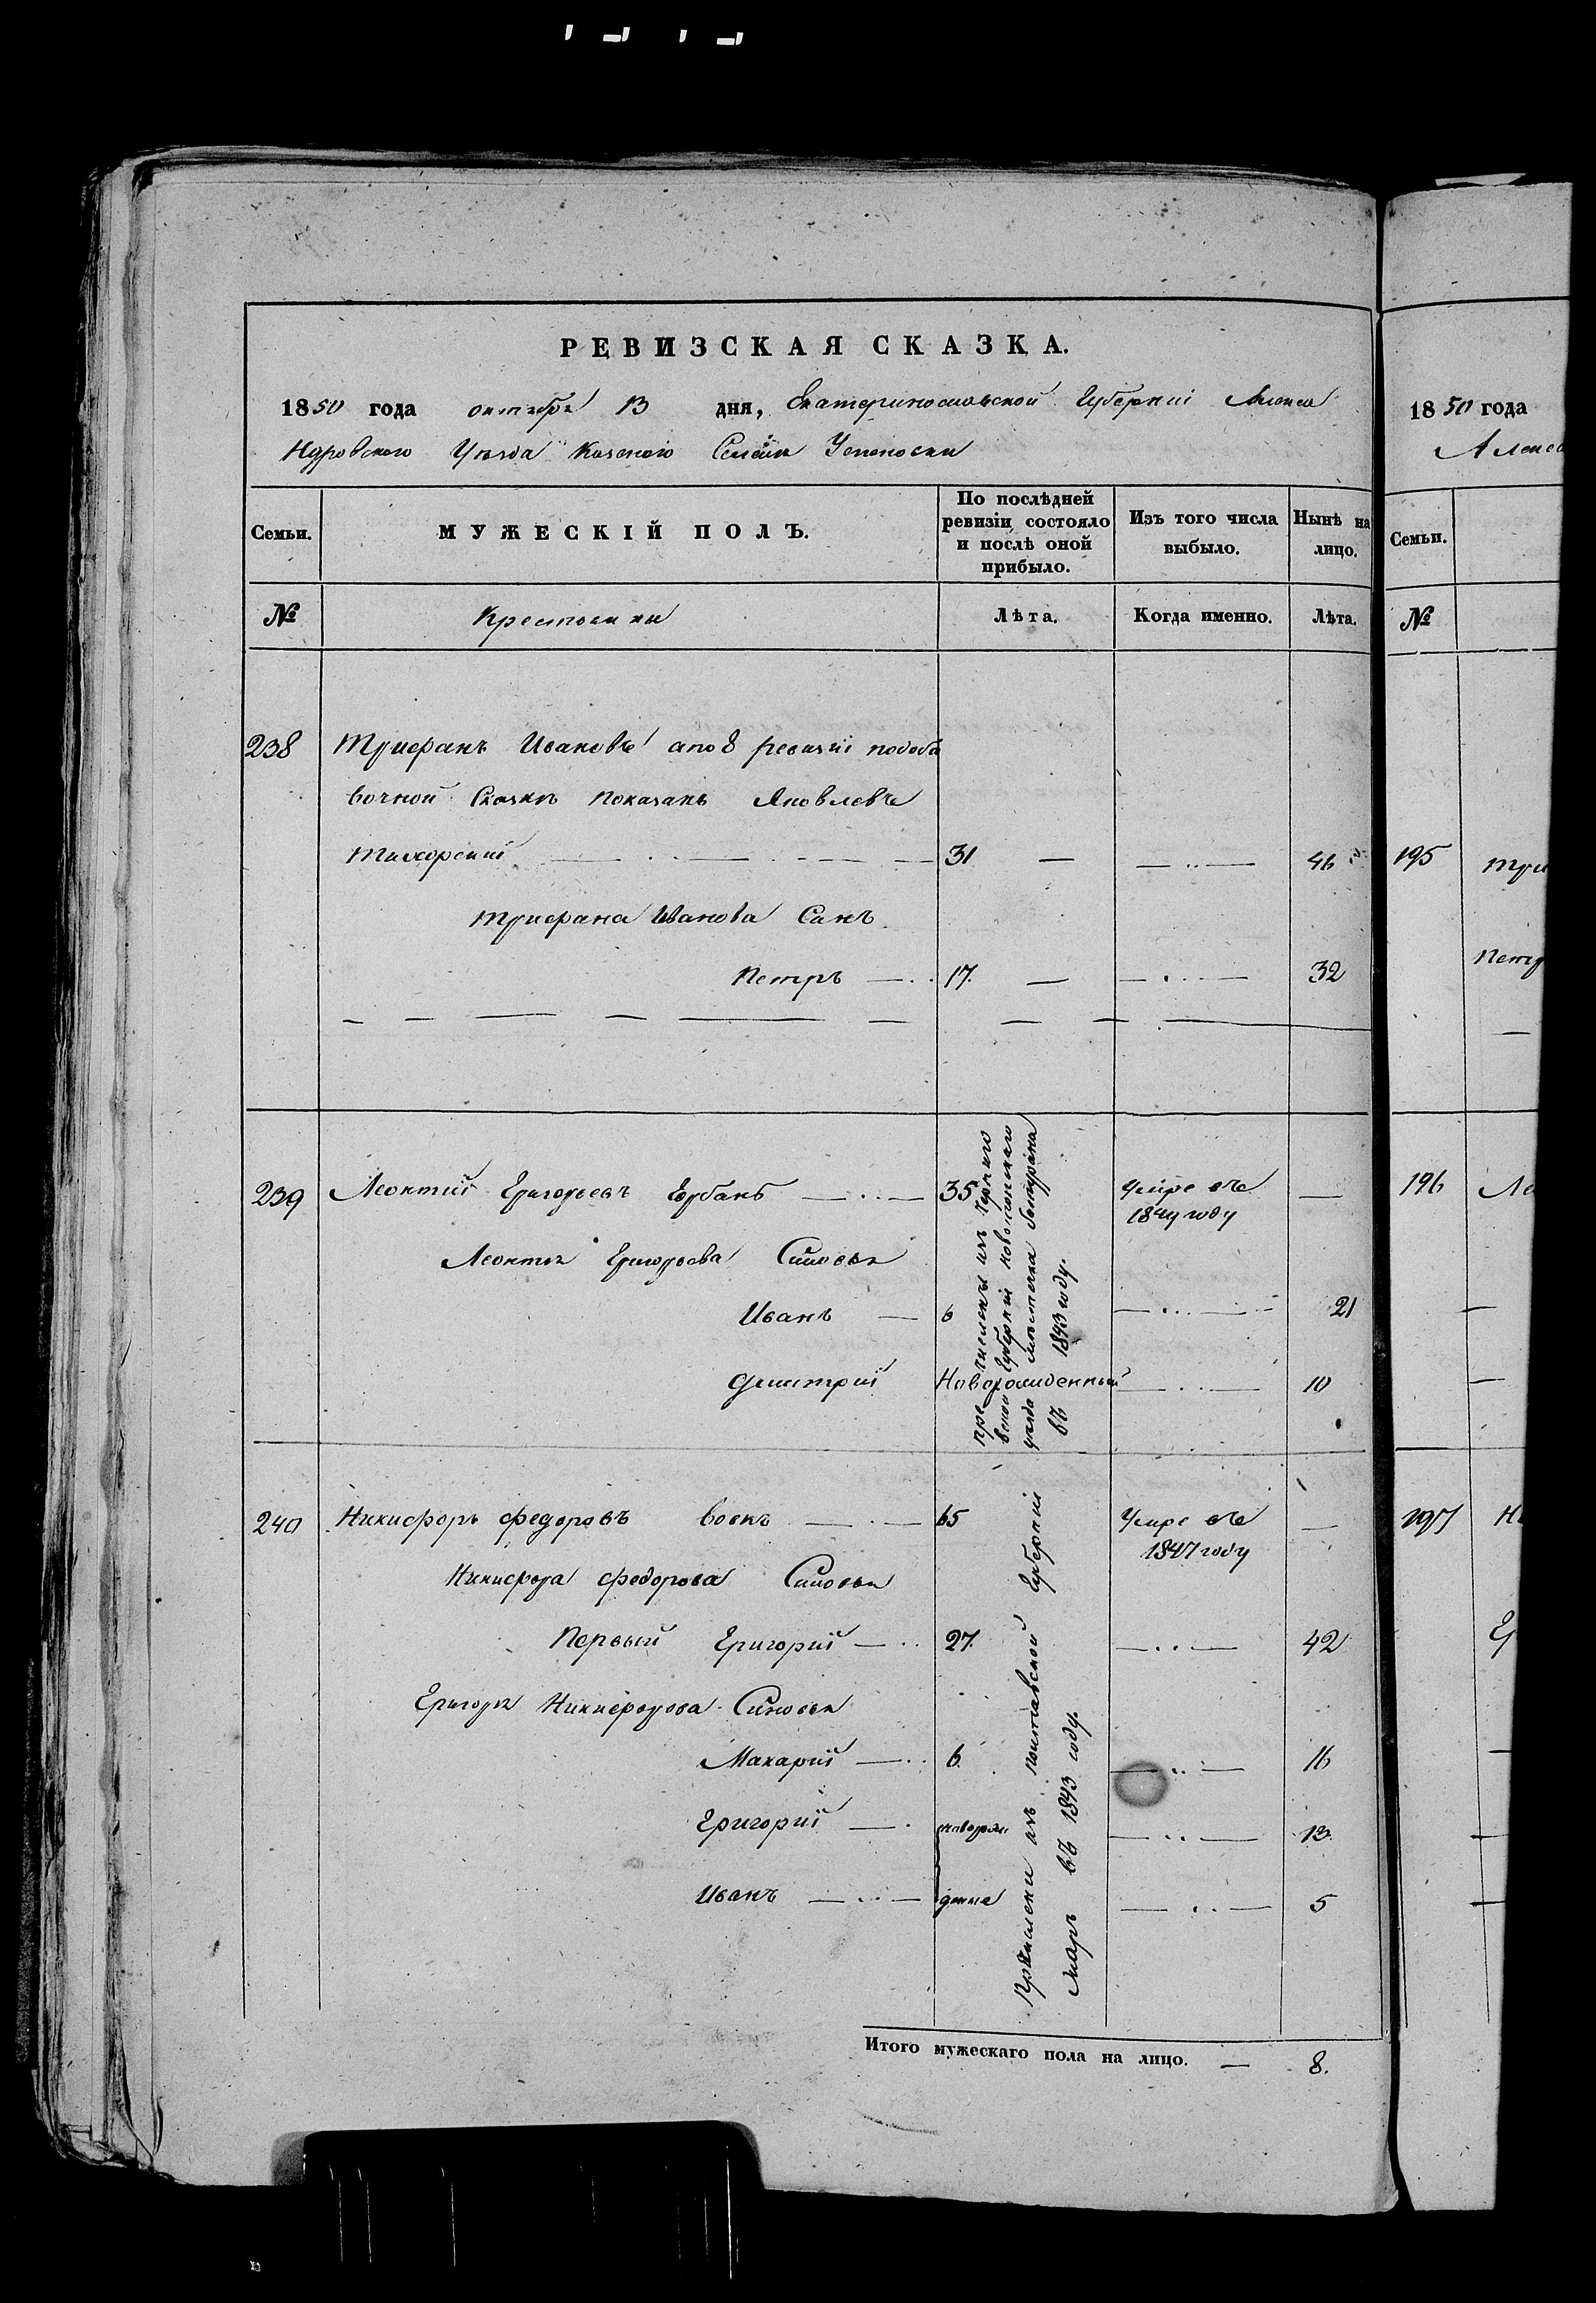 РЕВИЗСКАЯ СКАЗКА.
1850 года октября 13 дня, Екатеринославской Губерніи Алекса
ндровского Уѣзда Казенаго Селенія Успеновки
Семьи. МУЖЕСКІЙ ПОЛЪ. По послѣдней ревизіи состояло и послѣ оной прибыло. Изъ того числа выбыло. Нынѣ на лицо.
№ Крестьяны Лѣта. Когда именно. Лѣта.
238 Трифанъ Ивановъ апо 8 ревизіи подоба
вочной Сказкѣ показанъ Яковлевъ
31 — — 46
Трифана Иванова Сынъ
Петръ — 17. — — 32
239 Леонтий Григорьевъ Горбань — 35 умре въ —
1844 году
Леонтия Григорьева Сыновья
Иванъ — 6 — 21
Дмитрий Новорожденный — 10
перечисленъ изъ Черниго
вской Губерніи
уѣзда местечка Батурина
въ 1843 году.
240 Никифоръ Федоровъ — 65 Умре въ —
1847 году
Никифора Федорова Сыновья
Первый Григорий — 27. — 42
Григория Никифорова Сыновья
Макарий — 6. — 16
Григорий — новорож — 13.
Иванъ — деные — 5
Причислены изъ полтавской Губерніи
въ 1843 году.
Итого мужескаго пола на лицо. — 8.
1850 года
Алекса
Семьи.
№
195 Триф
Петр
196 Ле
197 Ни
Гр